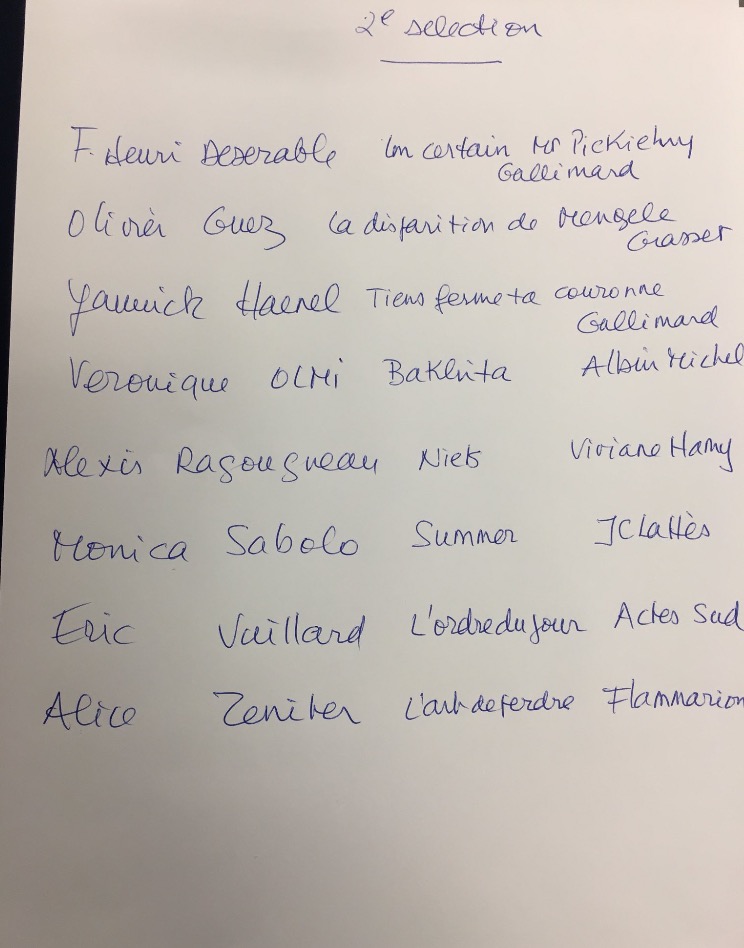 2e selection
F. Henri Deserable Un certain Mr Pickielny
Gallimard
Olivier Guez La disparition de Mengele
Grasset
Yannick Haenel Tiens ferme ta couronne
Gallimard
Veronique OLMI Bakhita Albin Michel
Alexis Ragougneau Niels Viviane Hamy
Monica Sabolo Summer JC Lattès
Eric Vuillard L'ordre du jour Actes Sud
Alice Zeniter L'art de perdre Flammarion